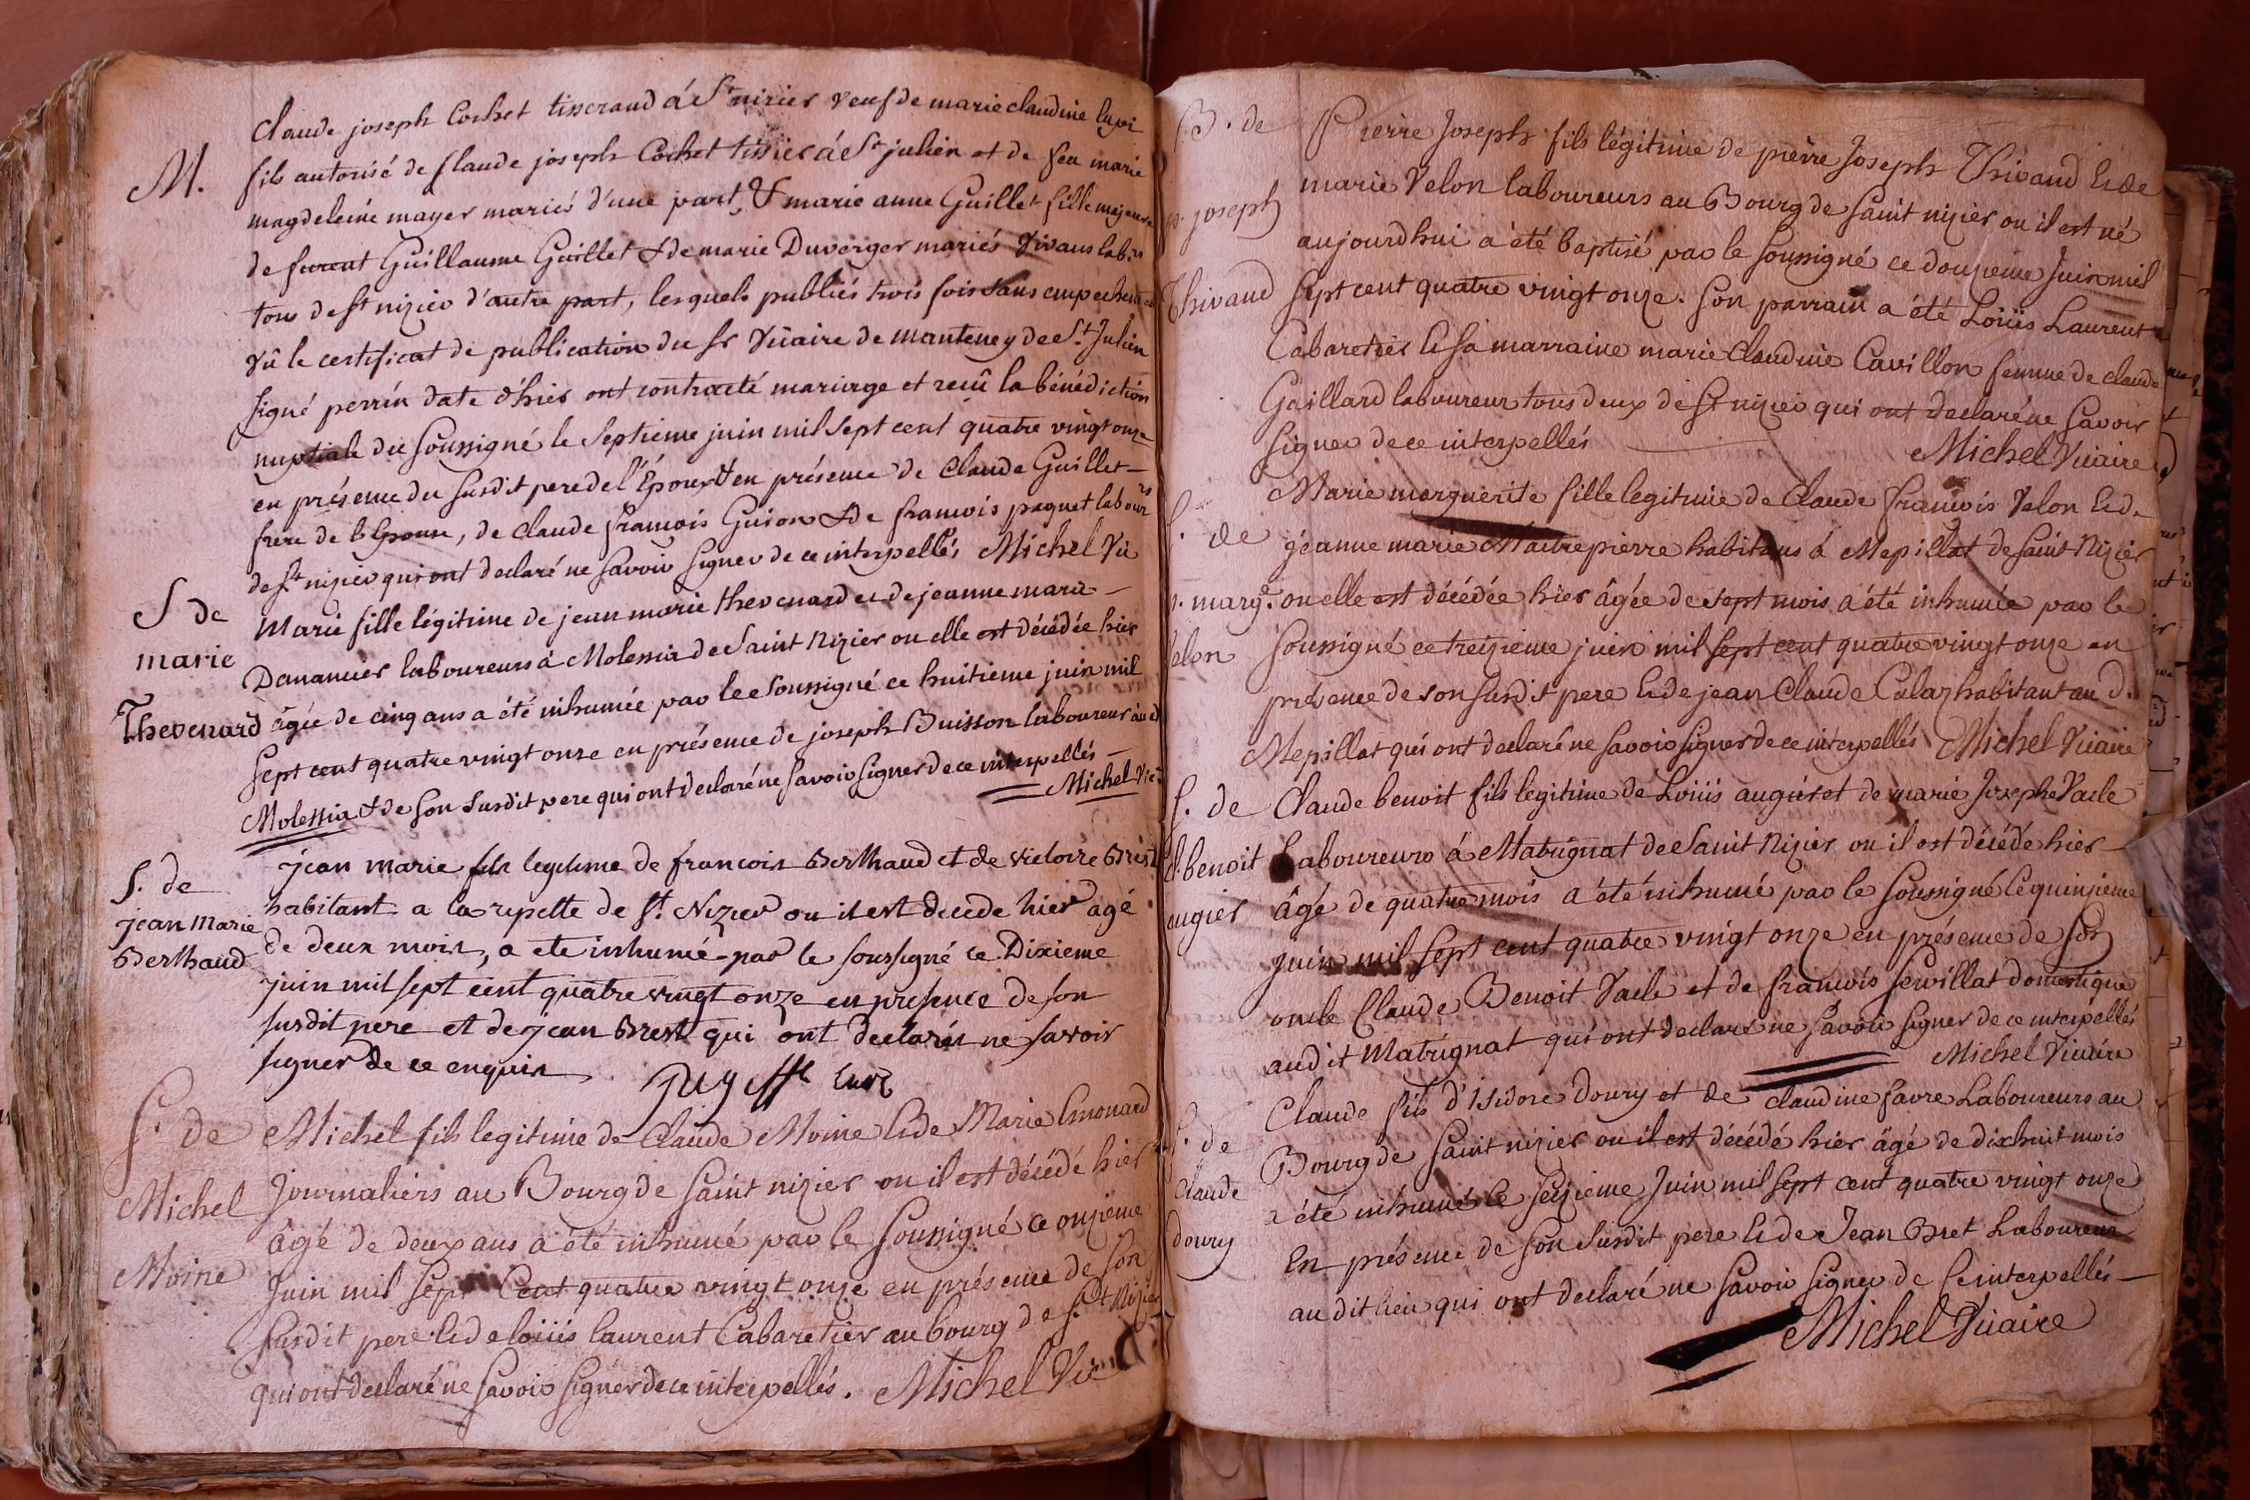 M.
Claude joseph Cochet tisserand á St nizier veuf de marie claudine
fils autorisé de Claude joseph Cochet tissier á St julien et de feu marie
magdeleine mayer mariés d'une part, & marie anne Guillet fille majeure
de furent Guillaume Guillet & de marie Duverger mariés vivans lab.rs
tous de St nizier d'autre part, lesquels publiés trois fois sans empechement
vû le certificat de publication du Sr Vicaire de manteney de St Julien
signé perrin date d'hier ont contracté mariage et reçû la bénédiction
nuptiale du soussigné le septieme juin mil sept cent quatre vingt onze
en présence du susdit pere de l'Époux & en présence de Claude Guillet
frere de l'Epouse, de Claude françois Guion & de francois paquet labours
de St nizier qui ont declaré ne savoir signer de ce interpellés Michel Vic
S de
marie
Thevenard
Marie fille légitime de jean marie thevenard et de jeanne marie
Danancier laboureurs á Molessia de Saint Nizier ou elle est décédée hier
âgée de cinq ans a été inhumée par le soussigné ce huitieme juin mil
sept cent quatre vingt onze en présence de joseph Buisson laboureur au d
Molessia & de son susdit pere qui ont declaré ne savoir signer de ce interpellés
Michel Vic
S. de
jean Marie
Berthaud
jean marie fils legitime de francois Berthaud et de victoire Brest
habitant a la ripette de St. Nizier ou il est decede hier agé
de deux mois, a ete inhumé par le soussigné ce Dixieme
juin mil sept cent quatre vingt onze en presence de son
susdit pere et de jean Brest qui ont declarés ne savoir
signer de ce enquis. curé
S. de
Michel
Moine
Michel fils legitime de Claude Moine & de Marie Emonard
Journaliers au Bourg de Saint nizier ou il est décédé hier
âgé de deux ans a été inhumé par le soussigné ce onzieme
Juin mil sept Cent quatre vingt onze en présence de son
susdit pere & de loüis laurent Cabaretier au bourg de St Nizier
qui ont declaré ne savoir signer de ce interpellés. Michel Vic
B. de
joseph
Thivaud
Pierre Joseph fils légitime de pierre Joseph Thivaud & de
marie Velon laboureurs au Bourg de saint nizier ou il est né
aujourdhui a été baptisé par le soussigné ce douzieme Juin mil
sept cent quatre vingt onze. Son parrain a été Loüis Laurent
Cabaretier & sa marraine marie Claudine Cavillon femme de claude
Gaillard laboureur tous deux de St nizier qui ont declaré ne savoir
signer de ce interpellés
Michel Vicaire
S. de
marge.
Velon
Marie marguerite fille legitime de Claude francois Velon & de
jéanne marie Maitrepierre habitans á Mepillat de saint Nizier
ou elle est décédée hier âgée de sept mois a été inhumée par le
soussigné ce treizieme juin mil sept cent quatre vingt onze en
présence de son susdit pere & de jean Claude Calaz habitant au d.
Mepillat qui ont declaré ne savoir signer de ce interpellés Michel Vicaire
S. de
Cl. benoit
augier
Claude benoit fils légitime de Loüis augier et de marie Josephe Vacle
Laboureurs á Matrignat de Saint Nizier ou il est décédé hier
âgé de quatre mois a été inhumé par le soussigné ce quinzieme
juin mil sept cent quatre vingt onze en présence de son
oncle Claude Benoit Vacle et de francois fevillat domestique
audit Matrignat qui ont declaré ne savoir signer de ce interpellés
Michel Vicaire
S. de
Claude
doury
Claude fils d'Isidore Doury et de claudine favre Laboureurs au
Bourg de Saint nizier ou il est décédé hier âgé de dixhuit mois
a été inhumé le seizieme Juin mil sept cent quatre vingt onze
En présence de son susdit pere & de Jean Bret Laboureur
au dit lieu qui ont declaré ne savoir signer de ce interpellés
Michel Vicaire